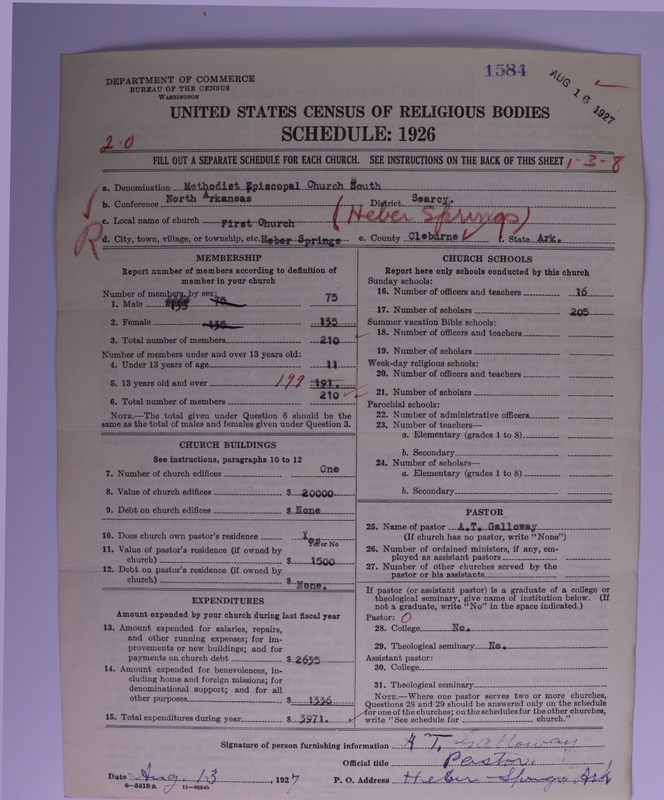 1584
AUG 16 1927
DEPARTMENT OF COMMERCE
BUREAU OF THE CENSUS
WASHINGTON
UNITED STATES CENSUS OF RELIGIOUS BODIES
SCHEDULE: 1926
2-0
FILL OUT A SEPARATE SCHEDULE FOR EACH CHURCH. SEE INSTRUCTIONS ON THE BACK OF THIS SHEET
1-3-8
a. Denomination Methodist Episcopal Church South
b. Conference North Arkansas District Searcy.
c. Local name of church First Church (Heber Springs)
R
d. City, town, village, or township, etc. Heber Springs e. County Cleburne f. State Ark.
MEMBERSHIP
Report number of members according to definition of
member in your church
Number of members by sex:
1. Male 135 75 75
2. Female 135 135
3. Total number of members 210
Number of members under and over 13 years old:
4. Under 13 years of age 11
5. 13 years old and over 199 191.
6. Total number of members 210
NOTE.—The total given under Question 6 should be the
same as the total of males and females given under Question 3.
CHURCH BUILDINGS
See instructions, paragraphs 10 to 12
7. Number of church edifices One
8. Value of church edifices $ 20000
9. Debt on church edifices $ None
10. Does church own pastor's residence? Yes
Yes or No
11. Value of pastor's residence (if owned by
church) $ 1500
12. Debt on pastor's residence (if owned by
church) $ None.
EXPENDITURES
Amount expended by your church during last fiscal year
13. Amount expended for salaries, repairs,
and other running expenses; for im-
provements or new buildings; and for
payments on church debt $ 2635
14. Amount expended for benevolences, in-
cluding home and foreign missions; for
denominational support; and for all
other purposes $ 1336
15. Total expenditures during year $ 3971.
CHURCH SCHOOLS
Report here only schools conducted by this church
Sunday schools:
16. Number of officers and teachers 16
17. Number of scholars 205
Summer vacation Bible schools:
18. Number of officers and teachers
19. Number of scholars
Week-day religious schools:
20. Number of officers and teachers
21. Number of scholars
Parochial schools:
22. Number of administrative officers
23. Number of teachers—
a. Elementary (grades 1 to 8)
b. Secondary
24. Number of scholars—
a. Elementary (grades 1 to 8)
b. Secondary
PASTOR
25. Name of pastor A.T. Galloway
(If church has no pastor, write "None")
26. Number of ordained ministers, if any, em-
ployed as assistant pastors
27. Number of other churches served by the
pastor or his assistants
If pastor (or assistant pastor) is a graduate of a college or
theological seminary, give name of institution below. (If
not a graduate, write "No" in the space indicated.)
Pastor: 0
28. College No.
29. Theological seminary No.
Assistant pastor:
30. College
31. Theological seminary
NOTE.—Where one pastor serves two or more churches,
Questions 28 and 29 should be answered only on the schedule
for one of the churches; on the schedules for the other churches,
write "See schedule for church."
Signature of person furnishing information A T. Galloway
Official title Pastor.
Date Aug. 13, 1927 P. O. Address Heber Springs Ark
8—5518a 11—9554b